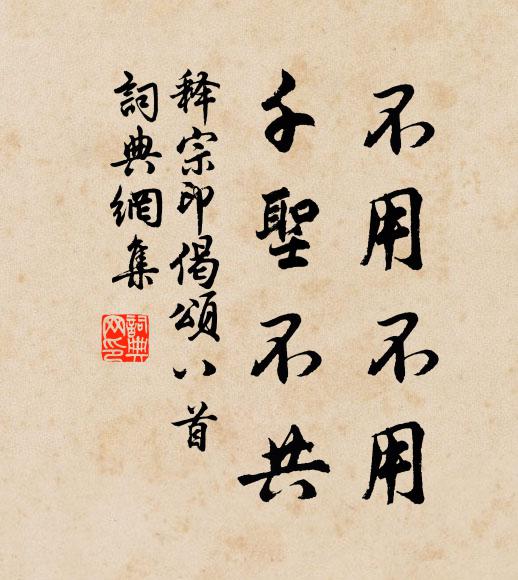 不用不用
千聖不共
释宗印偈頌八首
詞典網集
詞典
网印